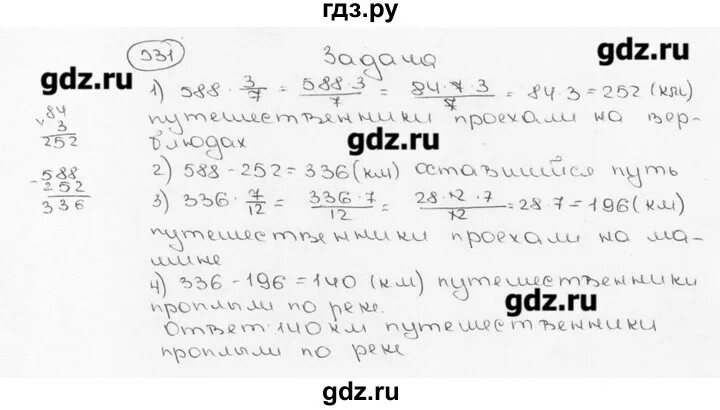 гдз.ру
931 Задача gdz.ru
gdz.ru
1) 588 · 3/7 = 588·3/7 = 84·7·3/7 = 84·3 = 252 (км)
путешественники проехали на вер-
блюдах gdz.ru
84
× 3
252
2) 588 - 252 = 336 (км) оставшийся путь
588
- 252
336
3) 336 · 7/12 = 336·7/12 = 28·12·7/12 = 28·7 = 196 (км)
путешественники проехали на ма-
шине
4) 336 - 196 = 140 (км) путешественники
проплыли по реке. gdz.ru
gdz.ru
Ответ: 140 км путешественники
проплыли по реке
gdz.ru